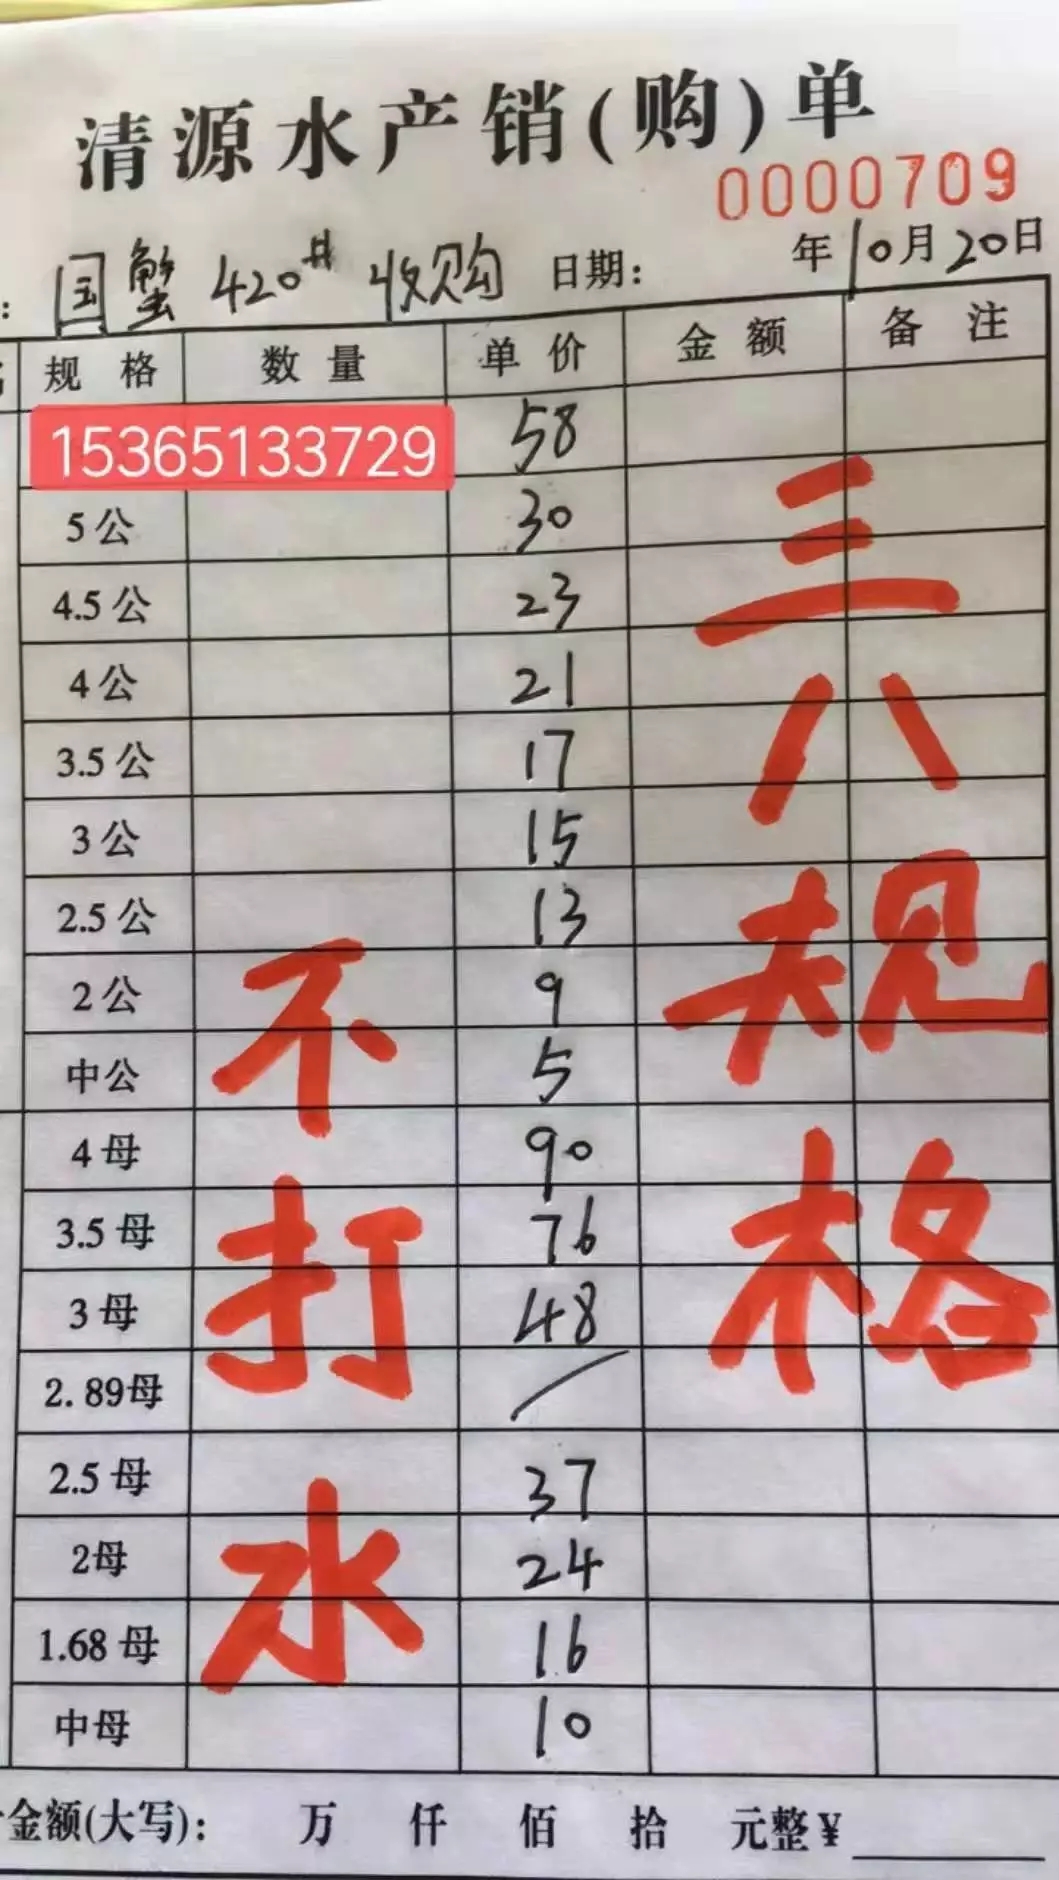 清源水产销(购)单
0000709
: 国蟹 420# 收购 日期: 年10月20日
规格 数量 单价 金额 备注
15365133729 58
5公 30
4.5公 23
4公 21
3.5公 17
3公 15
2.5公 13
2公 9
中公 5
4母 90
3.5母 76
3母 48
2.89母 /
2.5母 37
2母 24
1.68母 16
中母 10
不打水
三八规格
金额(大写): 万 仟 佰 拾 元整¥